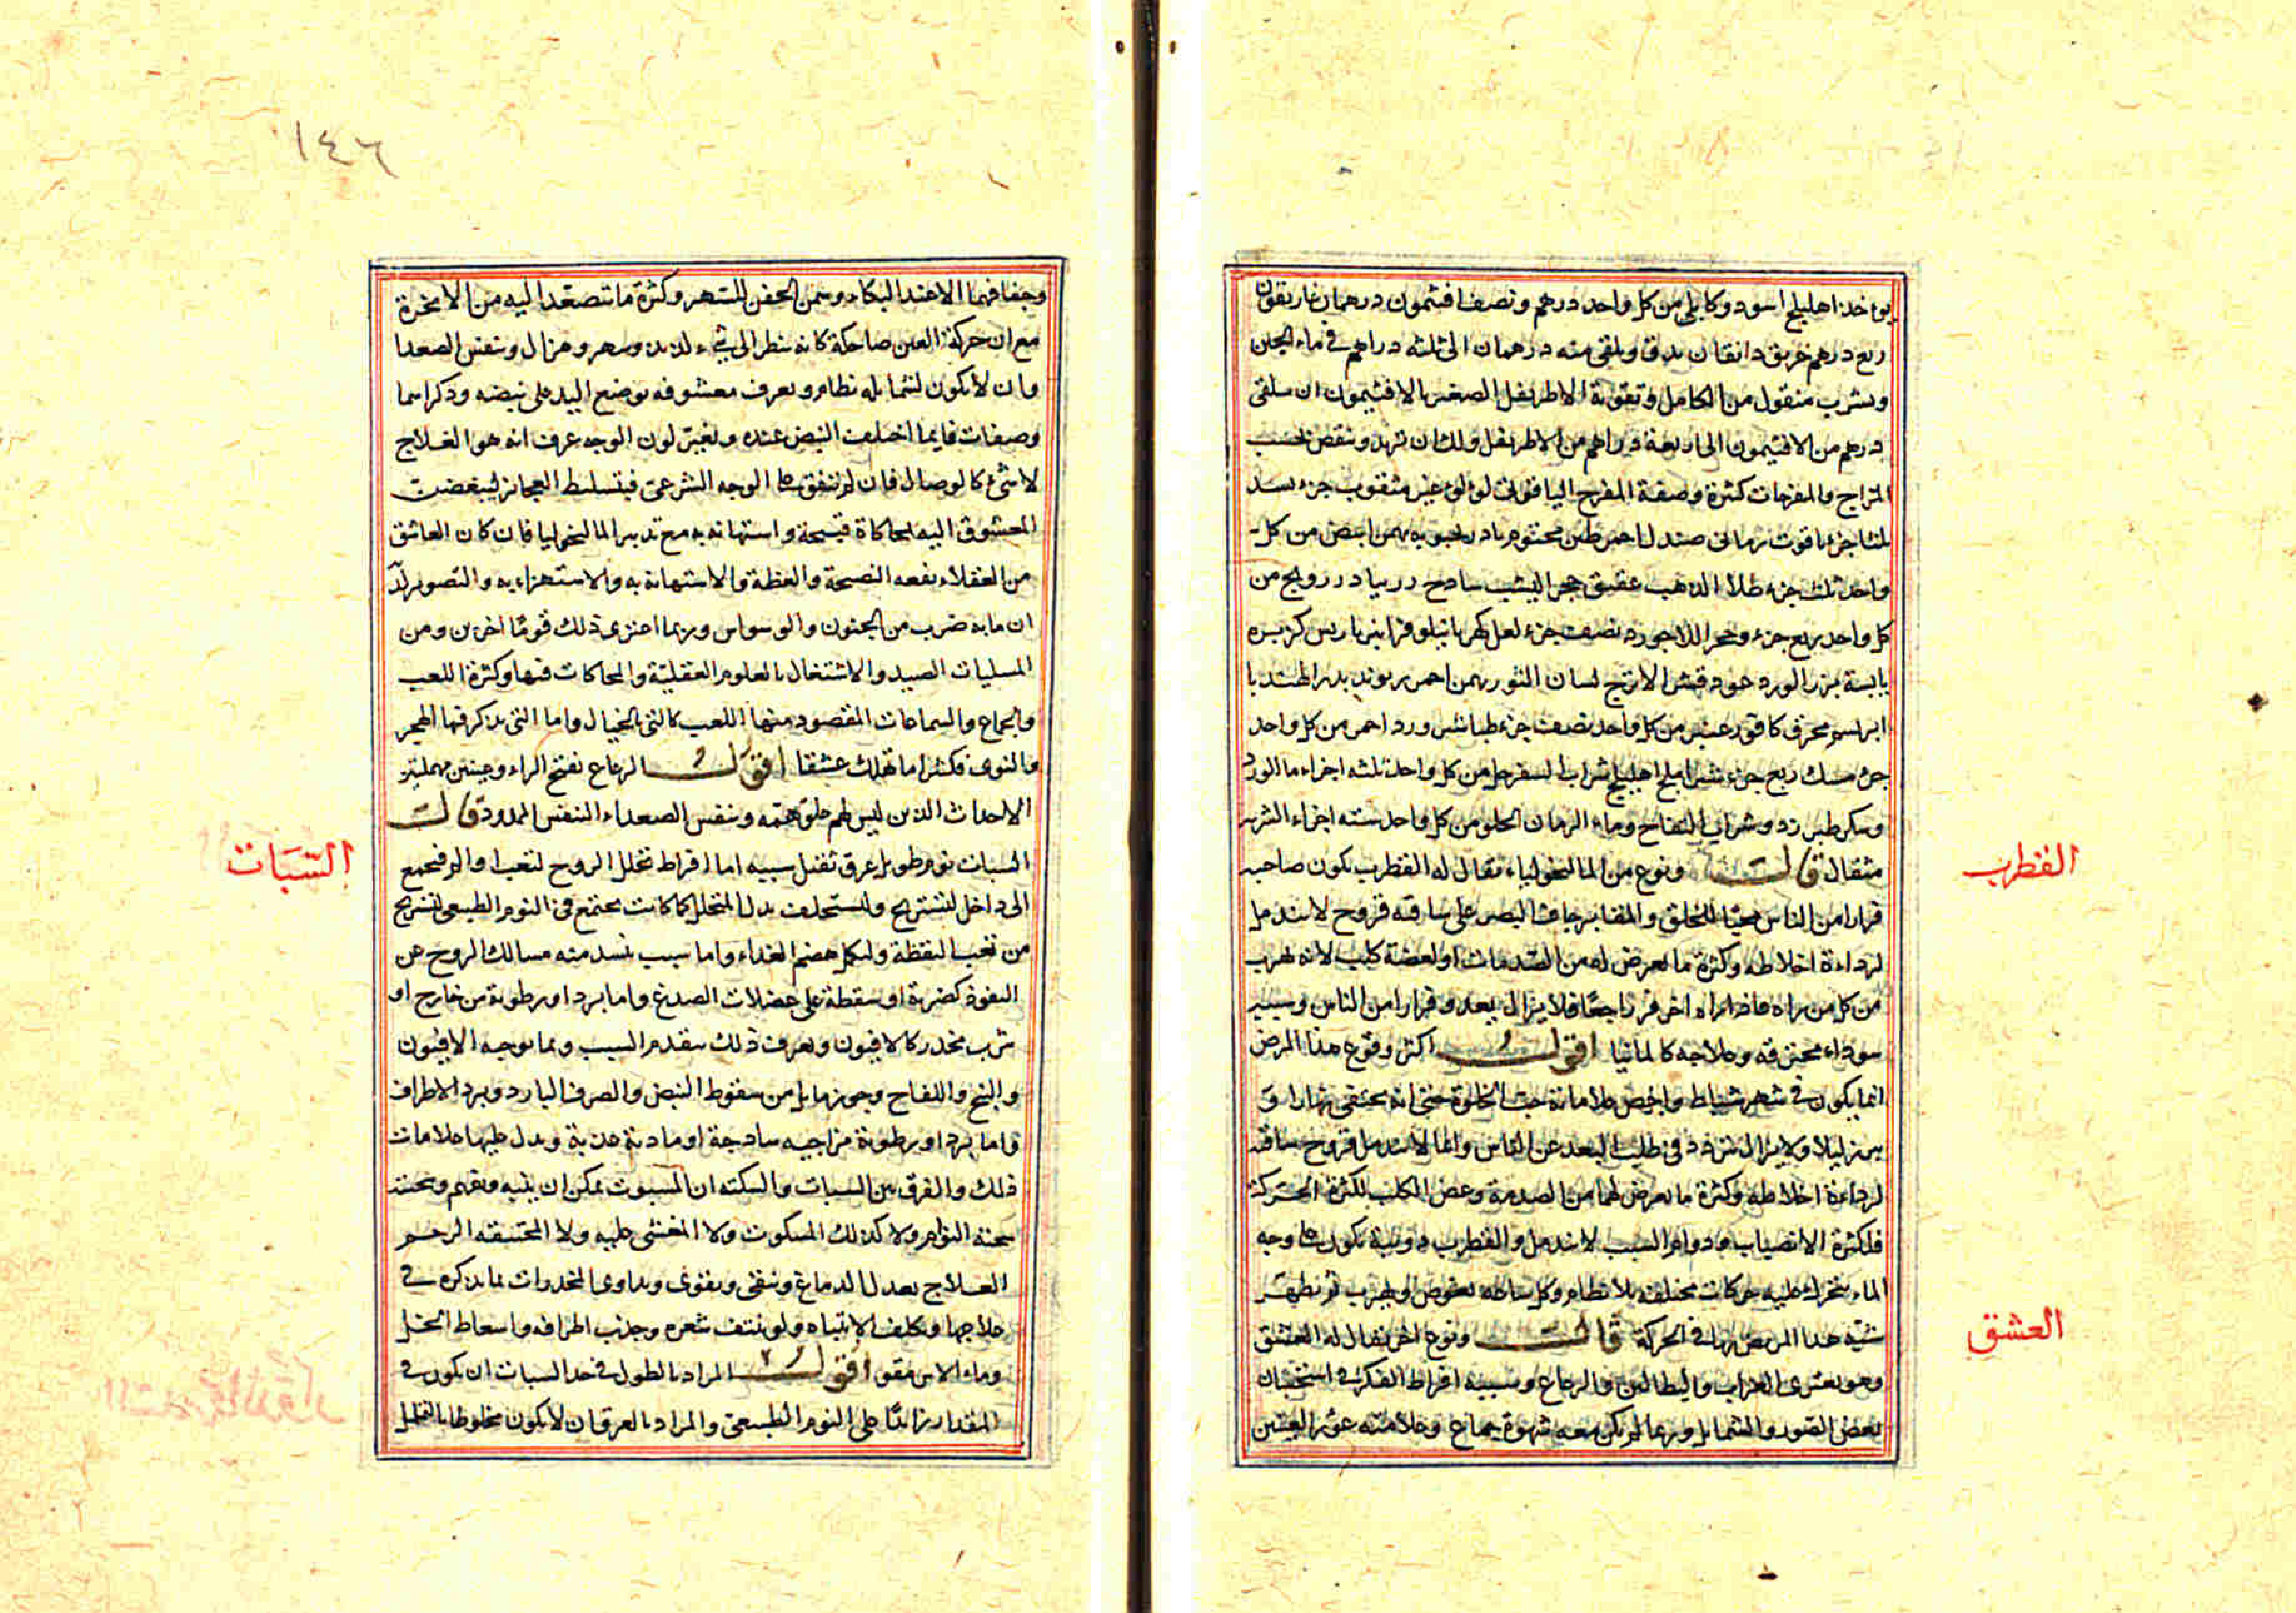 يؤخذ اهليلج اسود وكابلي من كل واحد درهم ونصف افتيمون درهمان غاريقون
ربع درهم خربق دانقان يدق ويلقى منه درهمان الى ثلثة دراهم في ماء الجبن
ويشرب منقول من الكامل وتقوية الاطريفل الصغير بالافتيمون ان يلقى
درهم من الافتيمون الى اربعة دراهم من الاطريفل ولك ان تزيد وتنقص بحسب
المزاج والمفرحات كثيرة وصفة المفرح الياقوتي لؤلؤ غير مثقوب جزء بسد
ثلثا جزء ياقوت رماني صندل احمر طين مختوم بادرنجبويه بهمن ابيض من كل
واحد ثلث جزء طلا الذهب عقيق حجر اليشب سادج درونج من
كل واحد ربع جزء وحجر اللاجورد نصف جزء لعل كهربا نيلوفر انبرباريس كزبره
يابسة بزر الورد عود قشر الاترج لسان الثور بهمن احمر ريوند بزر الهندبا
ابريسم محرق كافور عنبر من كل واحد نصف جزء طباشير ورد احمر من كل واحد
جزء مسك ربع جزء شير املج اهليلج شراب السفرجل من كل واحد ثلثه اجزاء ماالورد
وسكر طبرزد وشراب التفاح وماء الرمان الحلو من كل واحد سته اجزاء الشربه
مثقال قال ونوع من المالنخولياء يقال له القطرب يكون صاحبه
فرارا من الناس محبا للتخلق والمقابر جاف البصر على ساقيه قروح لا تندمل
لرداءة اخلاطه وكثرة ما يعرض له من الصدمات او لعضة كلب لانه يهرب
من كل من يراه فاذا راه اخر فر راجعا فلا يزال يعدو فرارا من الناس وسببه
سوداء محترقه وعلاجه كالمانيا اقول اكثر وقوع هذا المرض
انما يكون في شهر شباط واخص علاماته حب الخلوة حتى انه يختفي نهارا و
يبرز ليلا ولا يزال يتردد في طلب البعد عن الناس وانما لا تندمل قروح ساقه
لرداءة اخلاطه وكثرة ما يعرض لها من الصدمة وعض الكلب لكثرة الحركة
فلكثرة الانصباب ودوام السبب لا تندمل والقطرب دويبة تكون على وجه
الماء يتحرك عليه حركات مختلفه بلا نظام وكل ساعه يغوص او يهرب ثم يظهر
شبه هذا المريض بها في الحركة قال ونوع اخر يقال له العشق
وهو يعتري العزاب والبطالين والرعاع وسببه افراط الفكر في استحسان
بعض الصور والشمايل وربما لم يكن معه شهوة جماع وعلامته غور العينين
القطرب
العشق
١٤٦
وجفافهما الا عند البكاء وسمن الجفن للسهر وكثرة ما تتصعد اليه من الابخرة
مع ان حركة العين ضاحكة كانه ينظر الى شيء لذيذ وسهر وهزال وتنفس الصعدا
وان لا يكون لشمايله نظام ويعرف معشوقه بوضع اليد على نبضه وذكر اسما
وصفات فايما اختلف النبض عنده وتغير لون الوجه عرف انه هو العلاج
لا شيء كالوصال فان لم يتفق على الوجه الشرعي فبتسليط العجائز ليبغضن
المعشوق اليه بمحاكاة قبيحة واستهانه به مع تدبير المالنخوليا فان كان العاشق
من العقلاء نفعه النصيحة والعظة والاستهانة به والاستهزاء به والتصوير له
ان ما به ضرب من الجنون والوسواس وربما اعترى ذلك قوما اخرين ومن
المسليات الصيد والاشتغال بالعلوم العقلية والمحاكات فيها وكثرة اللعب
والجماع والسماعات المقصود منها اللعب كالتي بالخيال واما التي يذكر فيها الهجر
والنوى فكثيرا ما تهلك عشقا اقول الرعاع بفتح الراء وعينين مهملتين
الاحداث الذين ليس لهم خلق همه وتنفس الصعداء التنفس الممدود قال
السبات نوم طويل غرق ثقيل سببه اما افراط تحلل الروح لتعب او الم فيجمع
الى داخل لتستريح وتستخلف بدل المتحلل كما كانت تجتمع في النوم الطبيعي لتستريح
من تعب اليقظة وليكمل هضم الغذاء واما سبب تنسد منه مسالك الروح عن
النفوذ كضربة او سقطة على عضلات الصدغ واما برد او رطوبة من خارج او
شرب مخدر كالافيون ويعرف ذلك بتقدم السبب وبما يوجبه الافيون
والبنج واللفاح وجوز ماثل من سقوط النبض والعرق البارد وبرد الاطراف
واما برد او رطوبة مزاجيه ساذجة او مادية عذبة ويدل عليها علامات
ذلك والفرق بين السبات والسكته ان المسبوت يمكن ان ينبه ويفهم وسحنته
سحنة النوام ولا كذلك المسكوت ولا المغشي عليه ولا المختنقه الرحم
العلاج يعدل الدماغ وينقى ويقوى ويداوى المخدرات بما يذكر في
علاجها ويكلف الانتباه ولو بنتف شعره وجذب اطرافه واسعاط الخل
وماء الاس مقو اقول المراد بالطول في حد السبات ان يكون في
المقدار زائدا على النوم الطبيعي والمراد بالغرق ان لا يكون مخلوطا بالتململ
السبات